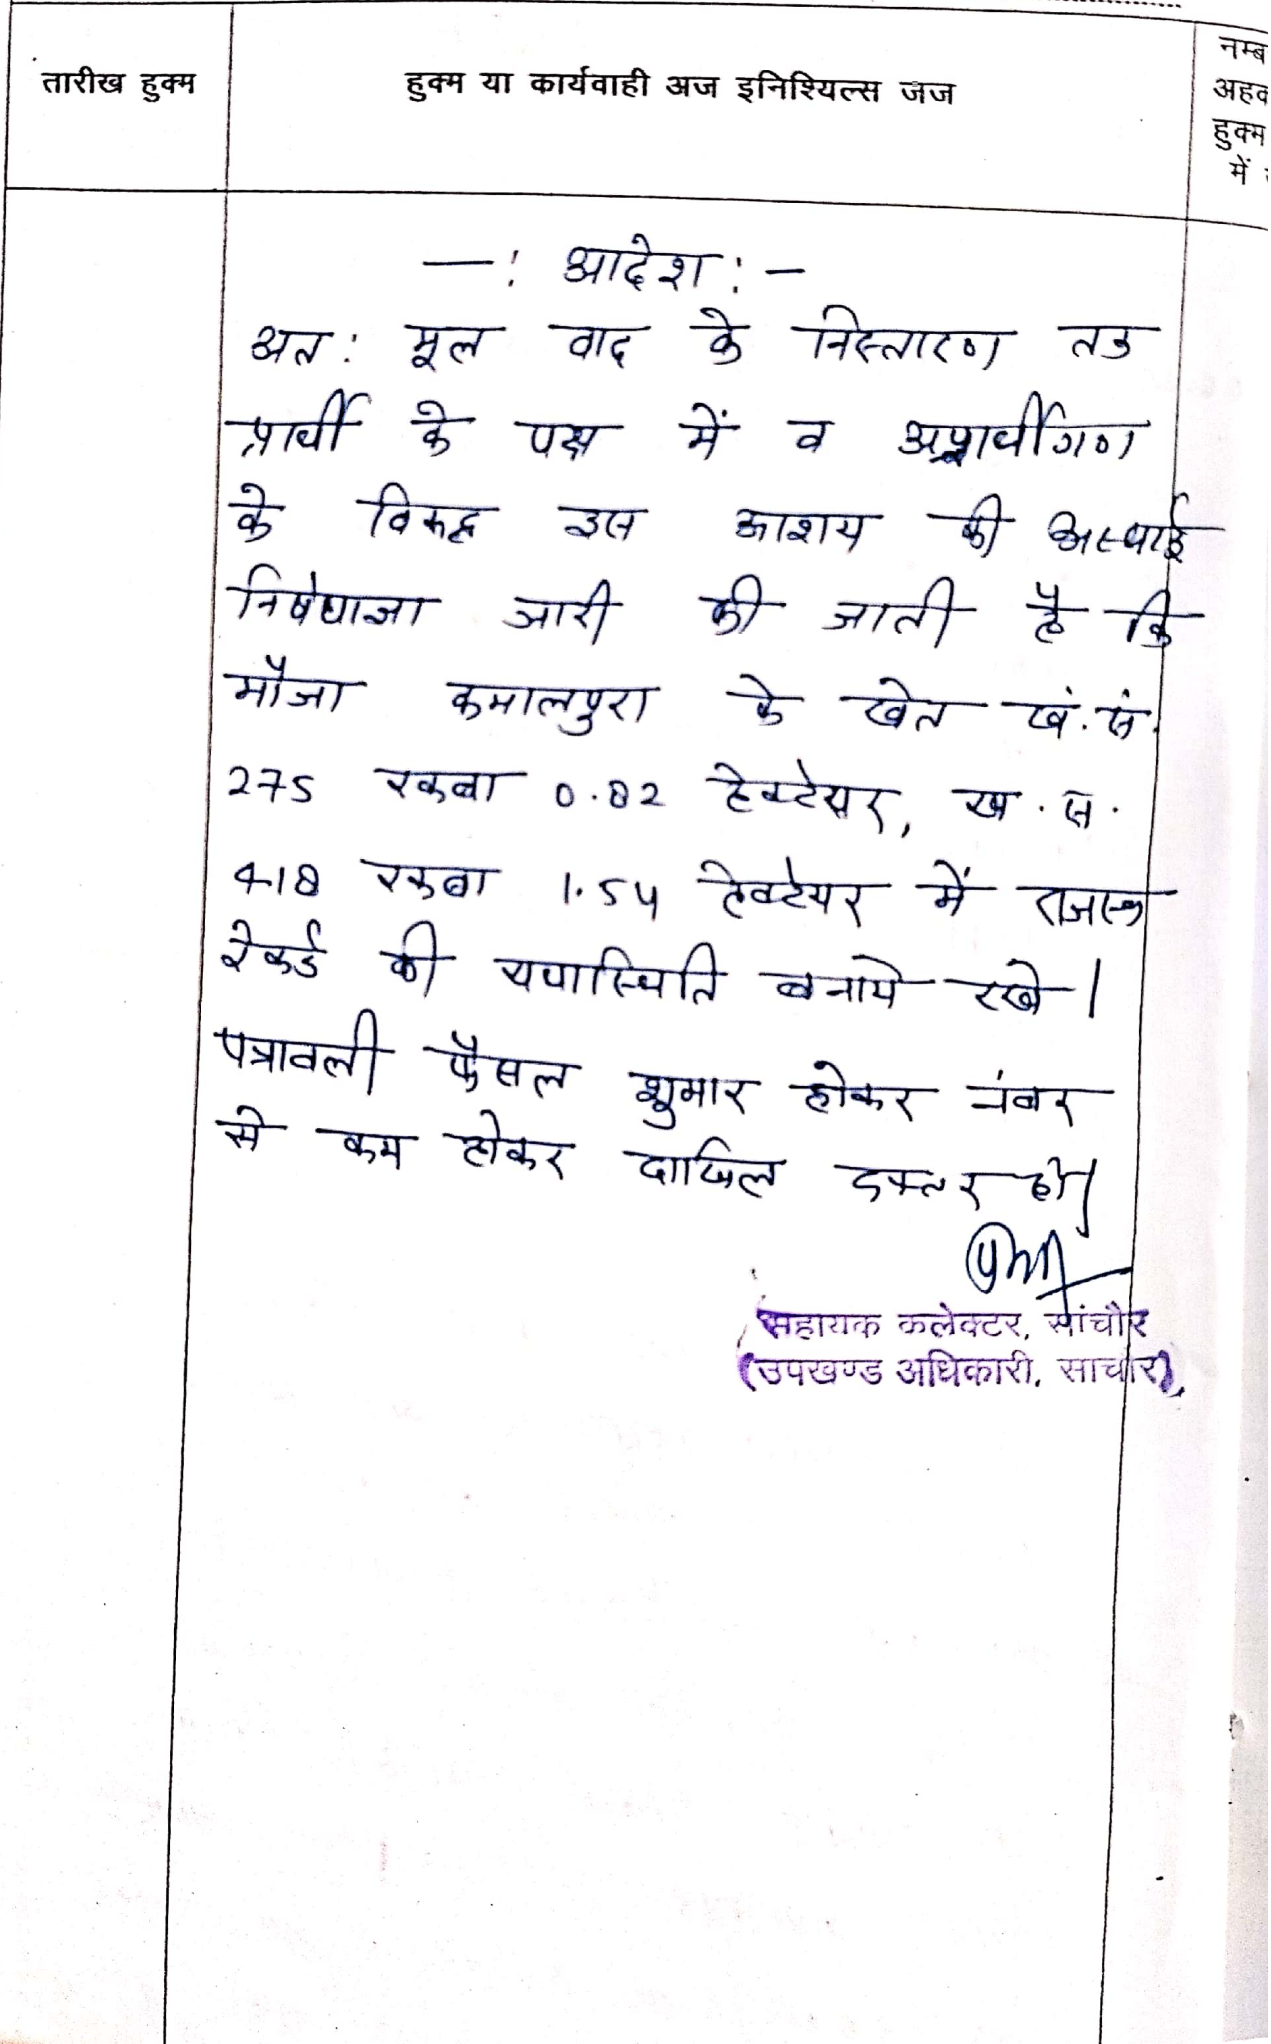 तारीख हुक्म
हुक्म या कार्यवाही अज इनिश्यिल्स जज
नम्ब
अहक
हुक्म
में
—: आदेश :—
अत: मूल वाद के निस्तारण तक
प्रार्थी के पक्ष में व अप्रार्थीगण
के विरूद्ध इस आशय की अस्थाई
निषेधाज्ञा जारी की जाती है कि
मौजा कमालपुरा के खेत खं. सं.
275 रकबा 0.82 हेक्टेयर, ख. स.
418 रकबा 1.54 हेक्टेयर में राजस्व
रेकर्ड की यथास्थिति बनाये रखे।
पत्रावली फैसल शुमार होकर नंबर
से कम होकर दाखिल दफ्तर हो।
सहायक कलेक्टर, सांचौर
(उपखण्ड अधिकारी, साचोर)